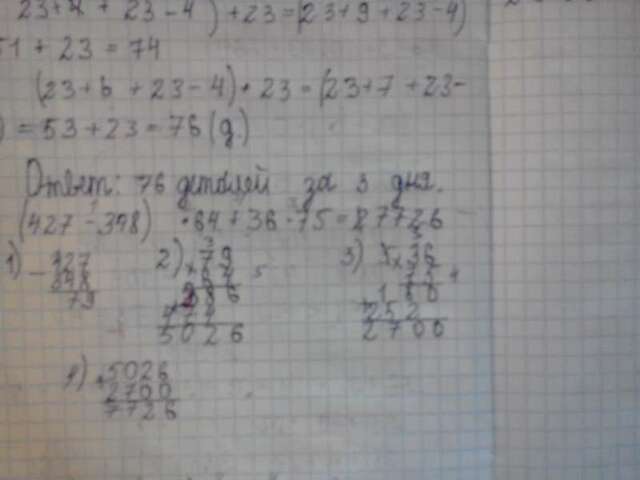 23+4 + 23-4) +23=(23+9+23-4)
51 + 23 = 74
(23+6 + 23-4)·23 = (23+7 +23-
) = 53+23=76 (д.)
Ответ: 76 деталей за 3 дня.
(427 - 348) · 64 + 36 · 75 = 87726
1) - 427
348
79
2) × 79
64
316
5026
3) × 36
75
180
252
2700
4) + 5026
2700
7726